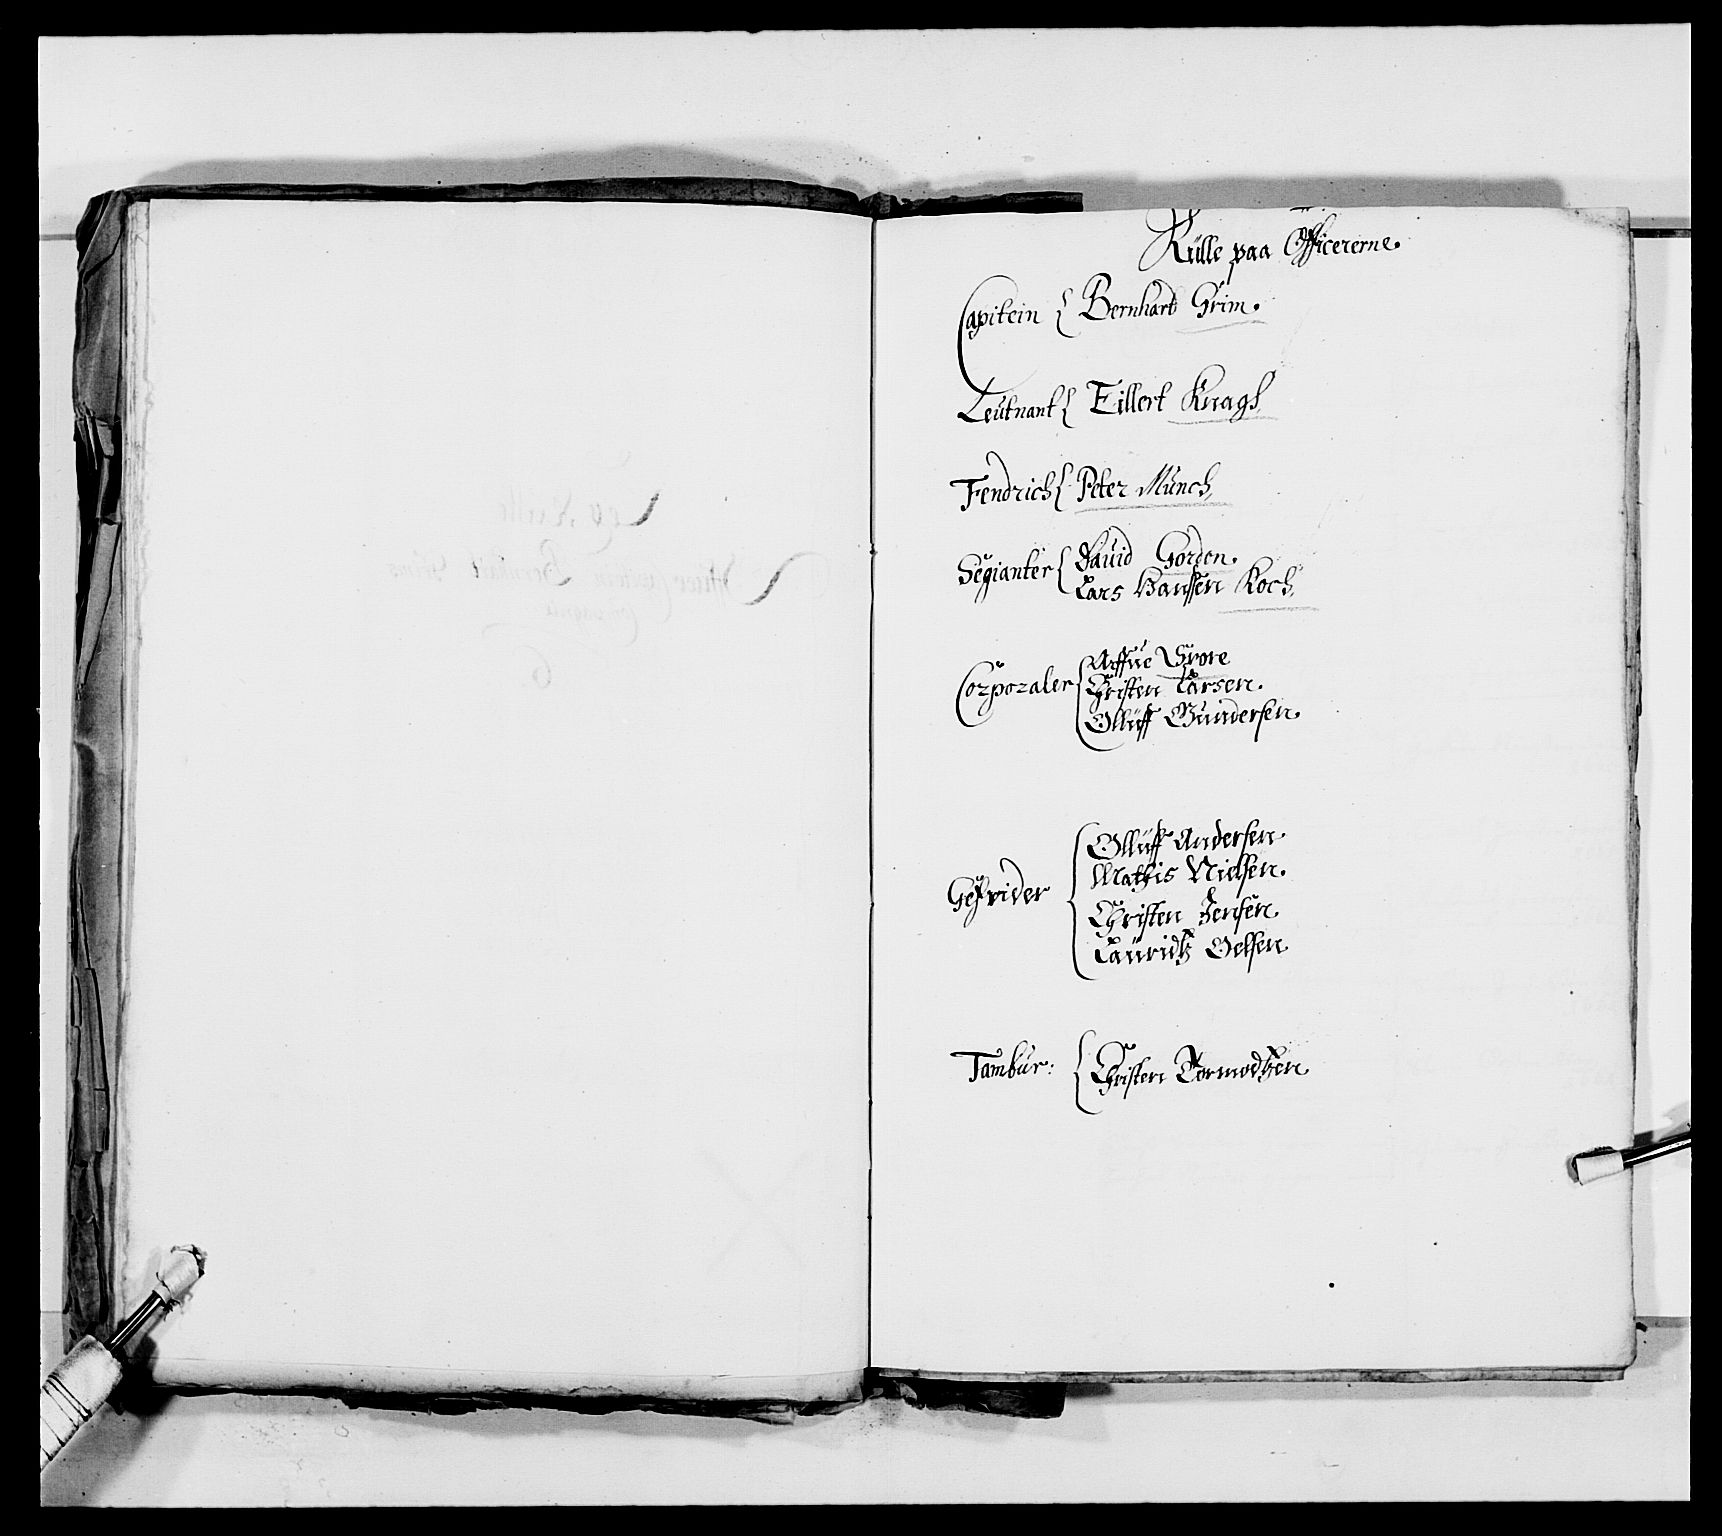 Rülle paa Officererne.
Capitein { Bernhart Grim.
Leutnant { Eillert Kragh
Fendrich { Peter Münch,
Segianter { Dauid Gorden.
Lars Hanssen Koch,
Corporaler { Affue Grore
Christen Larsen.
Olluff Gundersen.
Gefrider { Olluff Andersen
Mathis Nielsen.
Christen Jensen.
Lauridtz Oelsen
Tambur: { Christen Tormodtzen